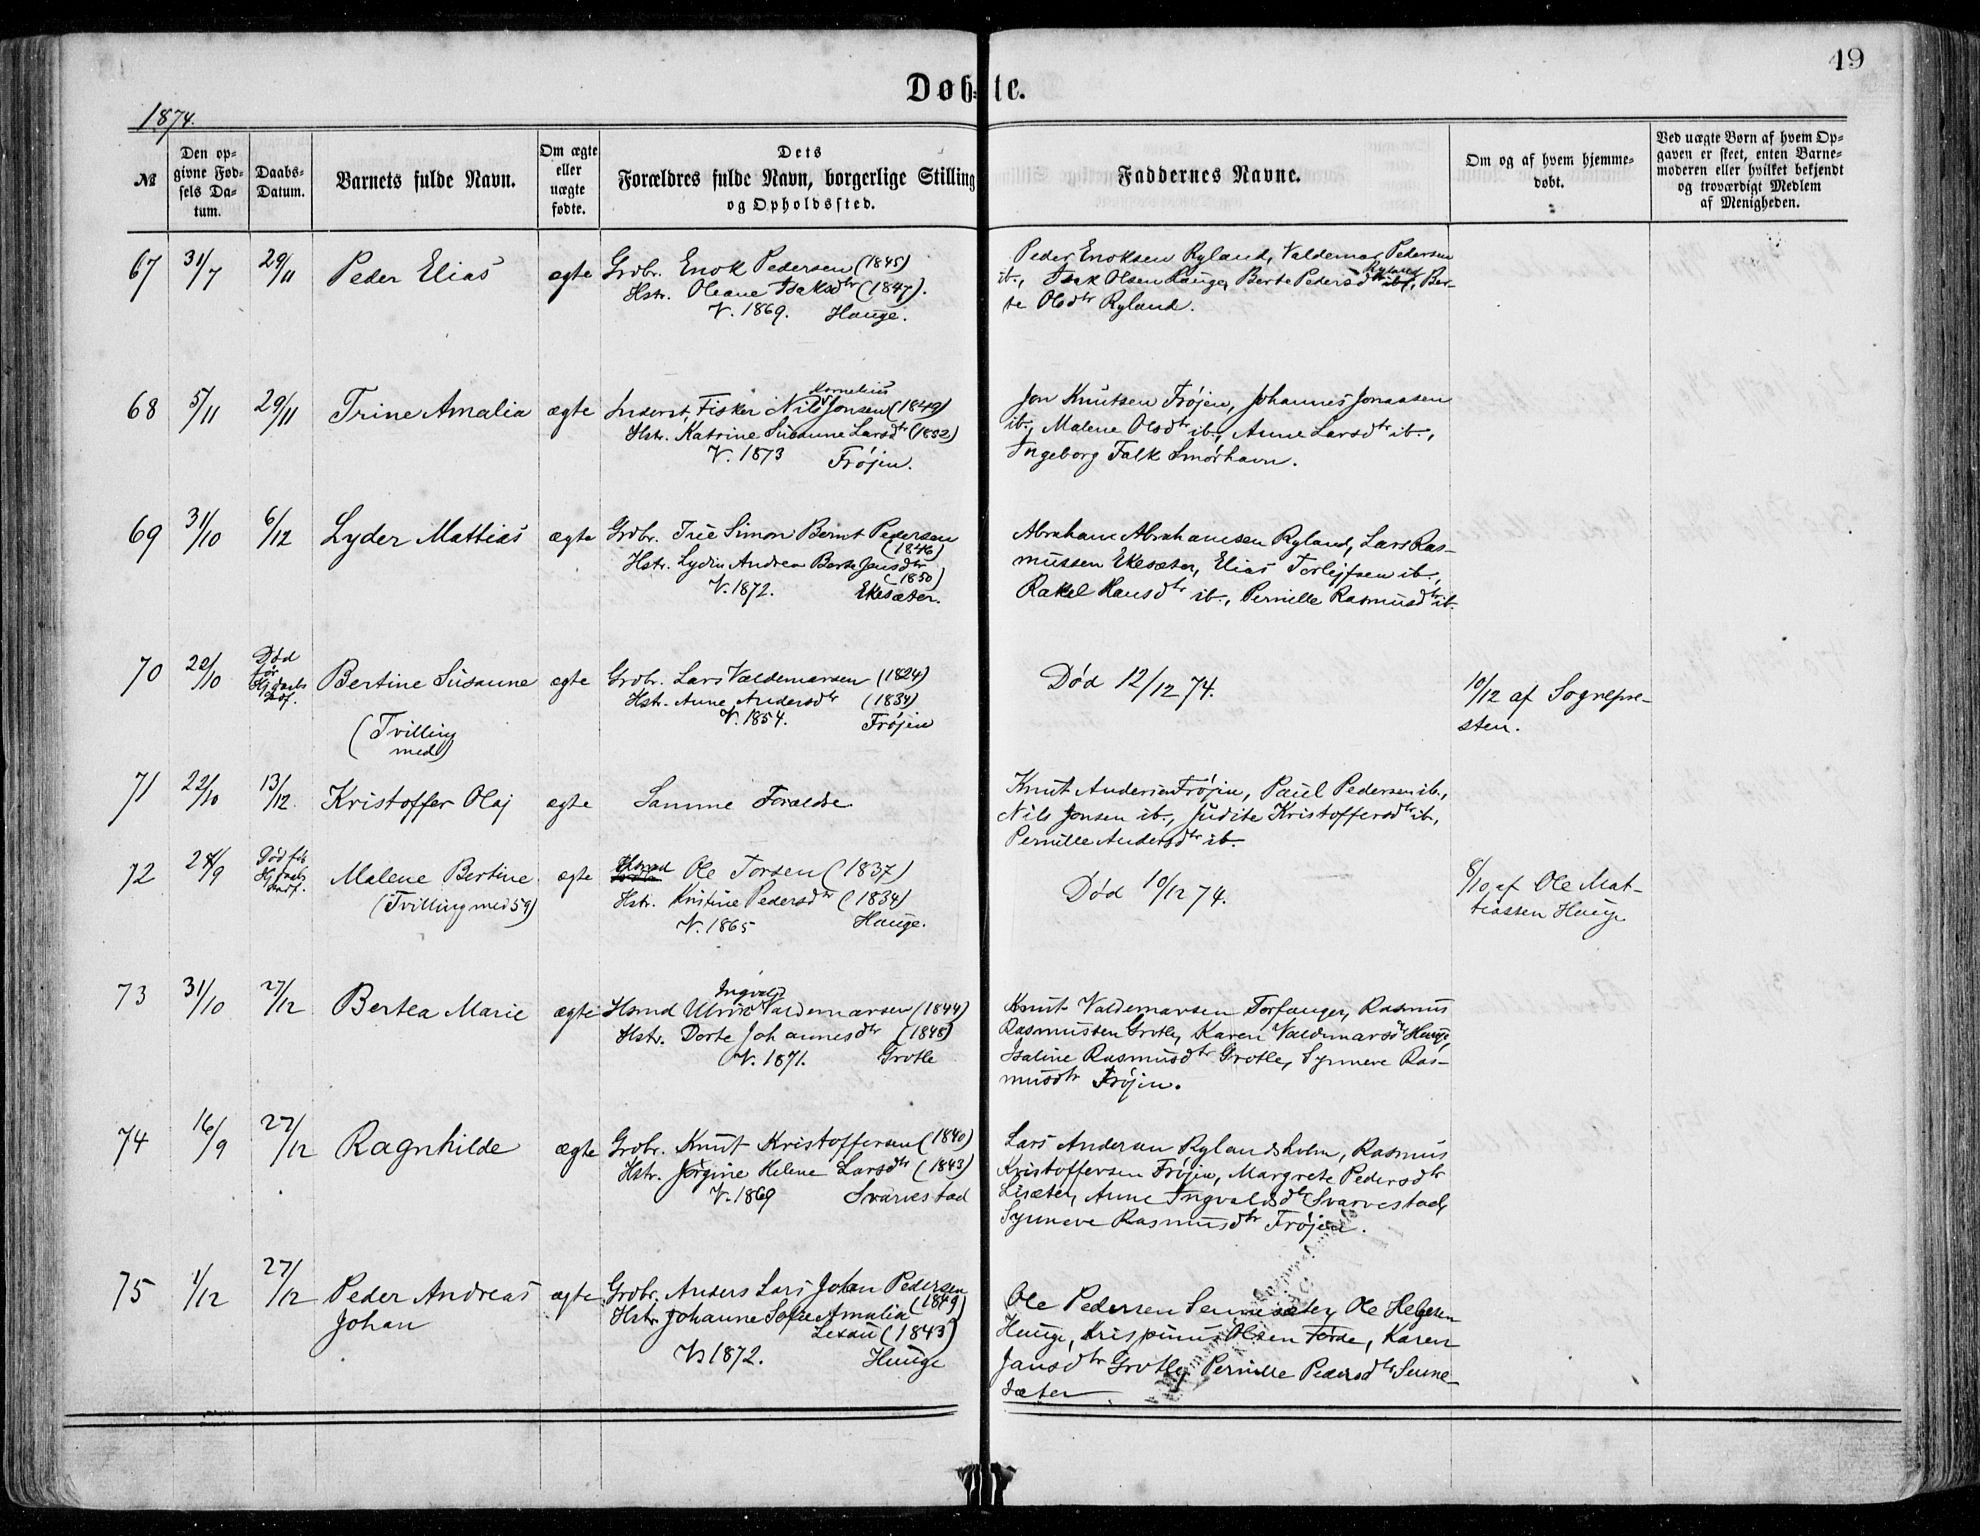 19
Døb-te.
1874.
№
Den op-
givne Fød-
sels Da-
tum.
Daabs-
Datum.
Barnets fulde Navn.
Om ægte
eller
uægte
fødte.
Dets
Forældres fulde Navn, borgerlige Stilling
og Opholdssted.
Faddernes Navne.
Om og af hvem hjemme-
døbt.
Ved uægte Børn af hvem Op-
gaven er skeet, enten Barne-
moderen eller hvilket bekjendt
og troværdigt Medlem
af Menigheden.
67 31/7 29/11 Peder Elias ægte Grdbr. Enok Pedersen (1845)
Hstr. Oleane Isaksdtr (1847).
V. 1869. Hauge.
Peder Enoksen Ryland, Valdemar Pedersen
ib., Isak Olsen Hauge, Berte Pedersdtr Ryland, Ber-
te Olsdtr Ryland.
68 5/11 29/11 Trine Amalia ægte Inderst, Fisker Nils Kornelius Jonsen (1849)
Hstr. Katrine Susanne Larsdtr (1852)
V. 1873 Frøjen.
Jon Knutsen Frøjen, Johannes Jonassen
ib., Malene Olsdtr ib., Anne Larsdtr ib.,
Ingeborg Falk Smørhavn.
69 31/10 6/12 Lyder Mattias ægte Grdbr. Simon Bernt Pedersen
(1846)
Hstr. Lydia Andrea Berte Jensdtr
(1850)
V. 1872. Ekesæter.
Abraham Abrahamsen Ryland, Lars Ras-
mussen Ekesæter, Elias Torlejfsen ib.,
Rakel Hansdtr ib., Pernille Rasmusdtr ib.
70 22/10 Død
før
Bertine Susanne ægte Grdbr. Lars Valdemarsen (1824)
Hstr. Anne Andersdtr (1834)
V. 1854. Frøjen
(Tvilling
med)
Død 12/12 74.
10/12 af Sognepre-
sten.
71 22/10 13/12. Kristoffer Olaj ægte Samme Forældre.
Knut Andersen Frøjen, Paul Pedersen ib.,
Nils Jonsen ib., Judite Kristoffersdtr ib,
Pernille Andersdtr ib.
72 28/9 Død før
Malene Bertine ægte Hsmd Ole Torsen (1837)
(Tvilling med 59) Hstr. Kristine Pedersdtr (1834)
V. 1865 Hauge.
Død 10/12 74.
8/10 af Ole Mat-
tiassen Hauge
73 31/10 27/12 Bertea Marie ægte Hsmd Ingvald Valdemarsen (1844)
Hstr. Dorte Johannesdtr (1848)
V. 1871. Grotle
Knut Valdemarsen Torfanger, Rasmus
Rasmussen Grotle, Karen Valdemarsdtr Hauge,
Isaline Rasmusdtr Grotle, Synneve Ras-
musdtr Frøjen.
74 16/9 27/12 Ragnhilde ægte Grdbr. Knut Kristoffersen (1840)
Hstr. Jørgine Helene Larsdtr (1843)
V. 1869 Svarvestad
Lars Andersen Rylandsholm, Rasmus
Kristoffersen Frøjen, Margrete Pedersdtr
Lisæter, Anne Ingvaldsdtr Svarvestad,
Synneve Rasmusdtr Frøjen.
75 1/12 27/12 Peder Andreas ægte Grdbr. Anders Lars Johan Pedersen
Johan (1849)
Hstr Johanne Sofie Amalia
(1843)
V. 1872. Hauge
Ole Pedersen Sennesæter, Ole Helgesen
Hauge, Krispinus Olsen Førde, Karen
Jansdtr Grotle, Pernille Pedersdtr Senne-
sæter